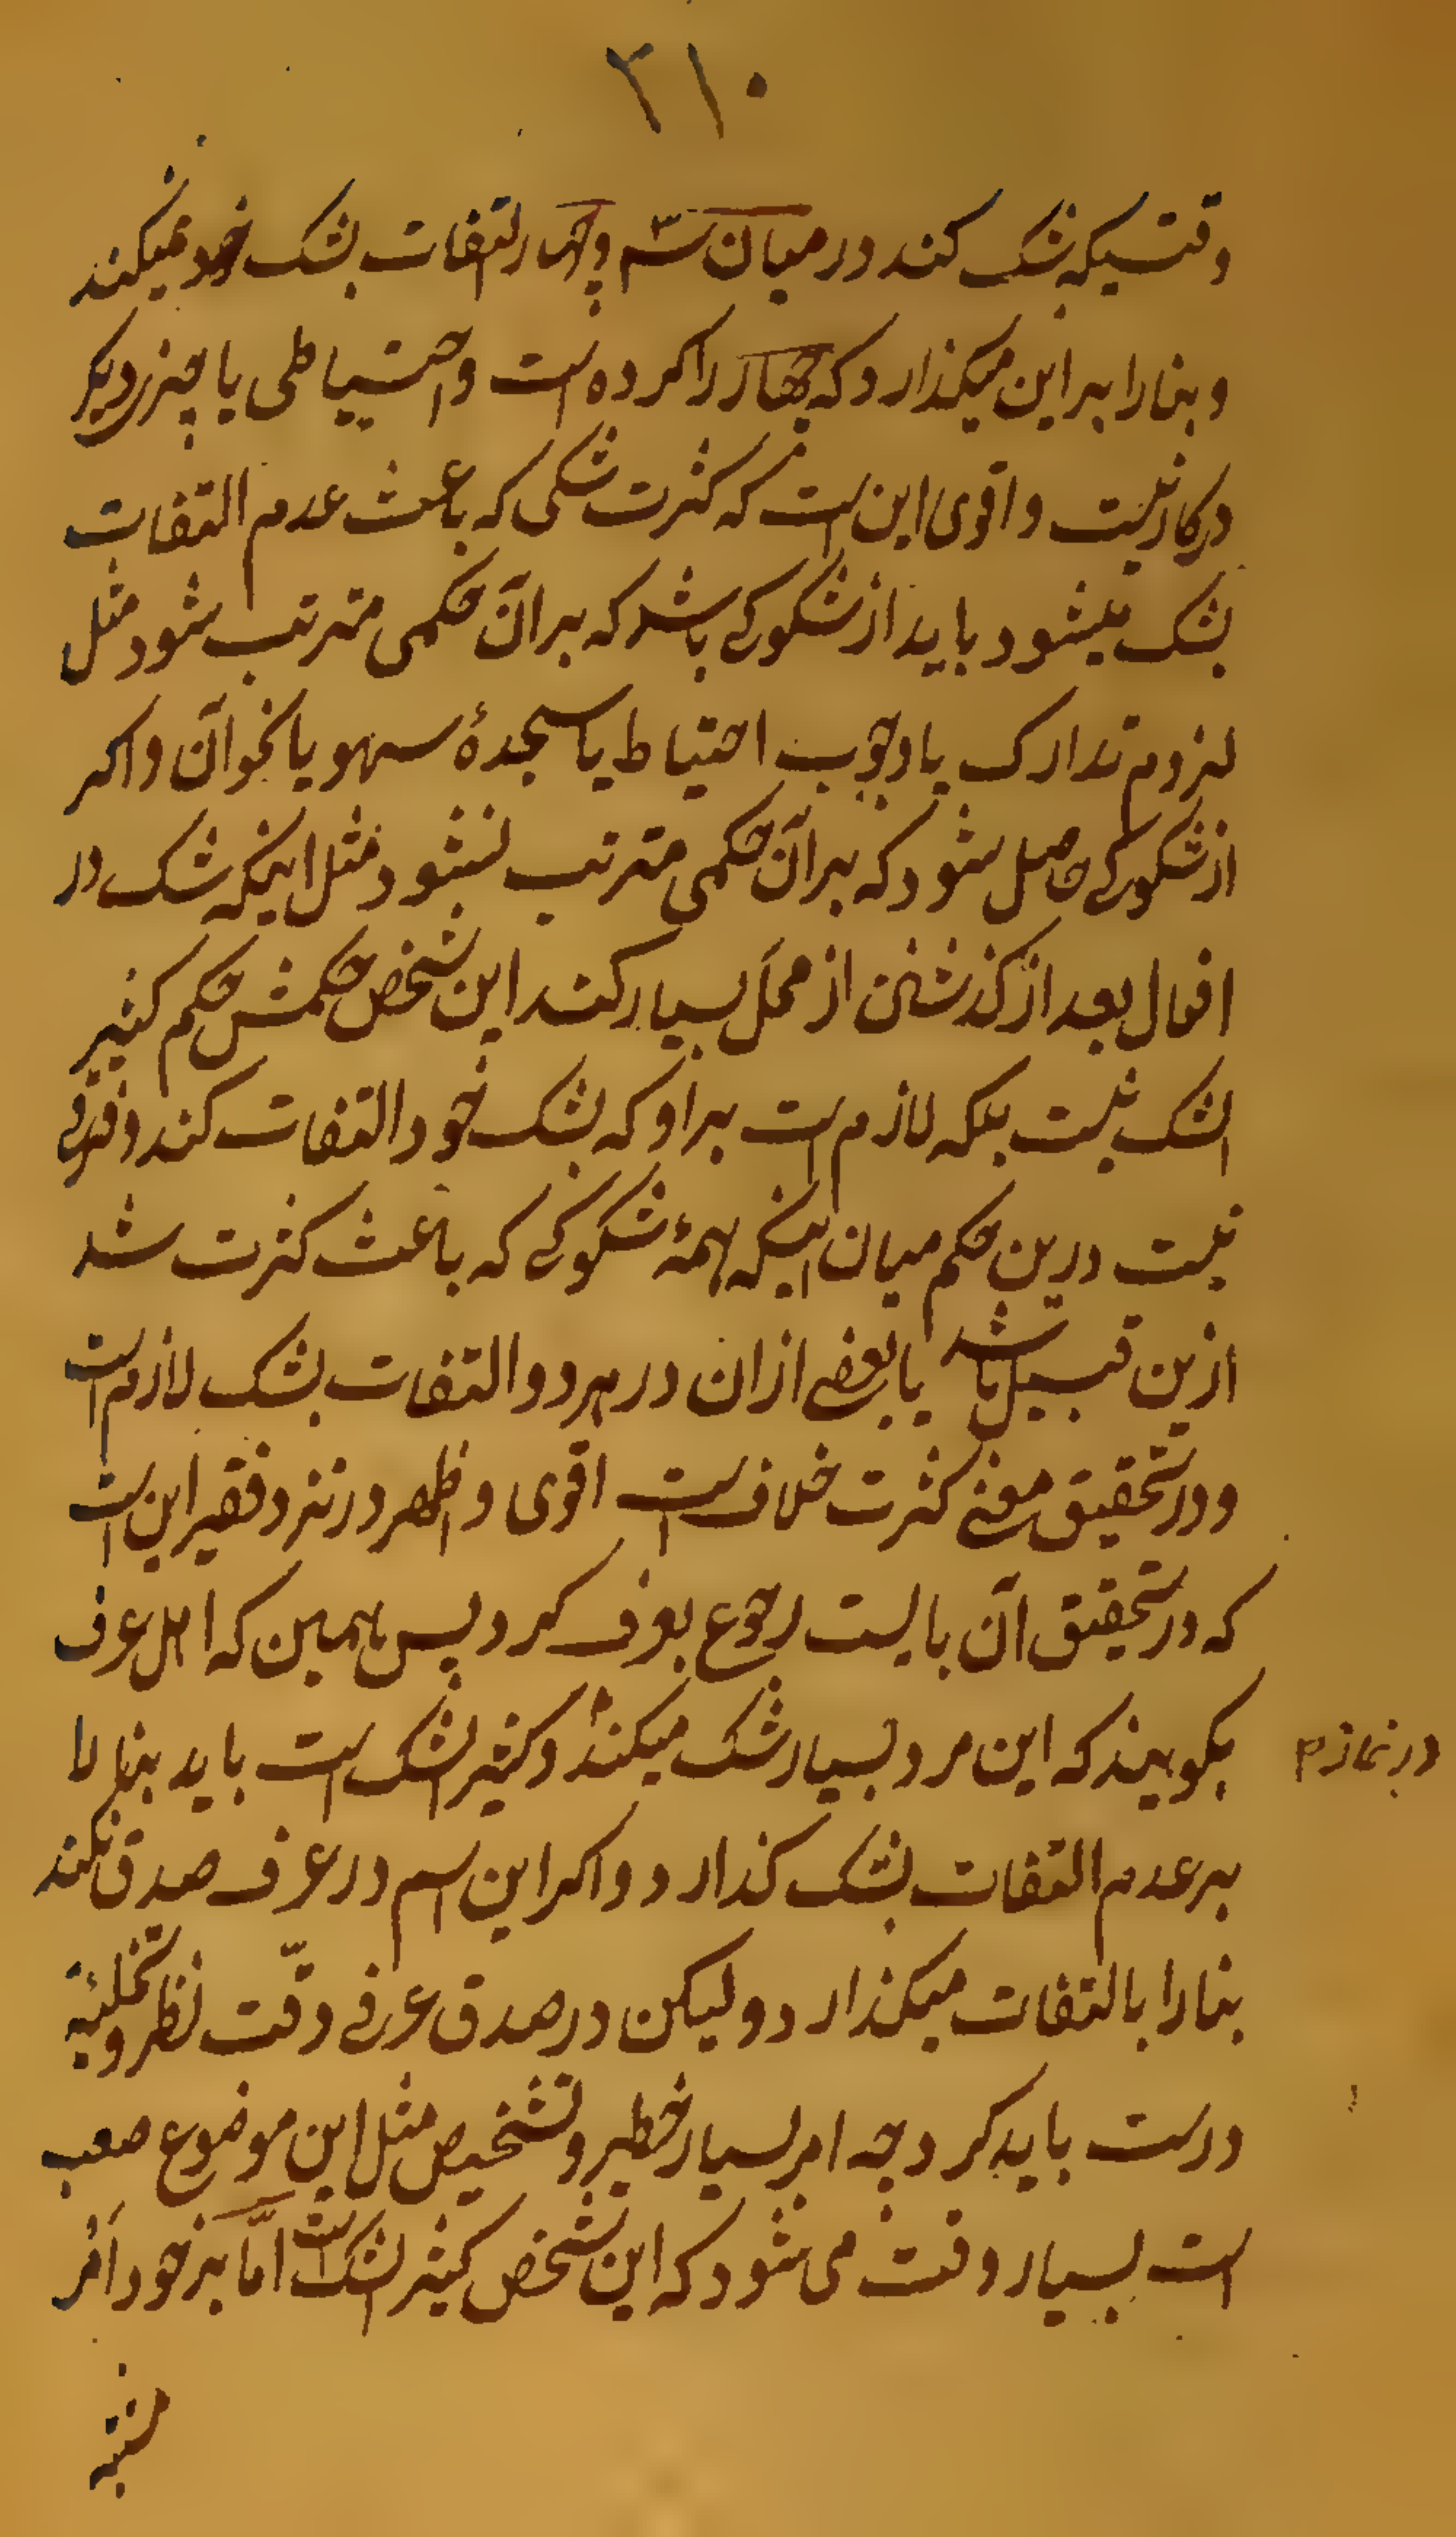 ۳۱۰
وقتیکه شک کند در میان سه و چهار التفات بشک خود نمیکند
و بنا را بر این میگذارد که چهار را کرده است و احتیاطی یا چیز دیگر
درکار نیست و اقوی این است که کثرت شکی که باعث عدم التفات
بشک میشود باید از شکوکی باشد که بر آن حکمی مترتب شود مثل
لزوم تدارک یا وجوب احتیاط یا سجدهٔ سهو یا نحو آن و اکر
از شکوکی حاصل شود که بر آن حکمی مترتب نشود مثل اینکه شک در
افعال بعد از کذشتن از محل بسیار کند این شخص حکمش حکم کثیر
الشک نیست بلکه لازم است بر او که بشک خود التفات کند و فرقی
نیست درین حکم میان اینکه همهٔ شکوکی که باعث کثرت شد
ازین قبیل باشد یا بعضی ازان در هر دو التفات بشک لازم است
و در تحقیق معنی کثرت خلاف است اقوی و اظهر در نزد فقیر این است
که در تحقیق آن بایست رجوع بعرف کرد پس همین که اهل عرف
بکویند که این مرد بسیار شک میکند و کثیر الشک است باید بنا را
در نماز م
بر عدم التفات بشک کذارد و اکر این اسم در عرف صدق نکند
بنا را بالتفات میکذارد و لیکن در صدق عرفی دقّت نظر و تخلیهٔ
درست باید کرد چه امر بسیار خطیر و تشخیص مثل این موضوع صعب
است بسیار وقت می شود که این شخص کثیر الشک است امّا بر خود امر
مشتبه